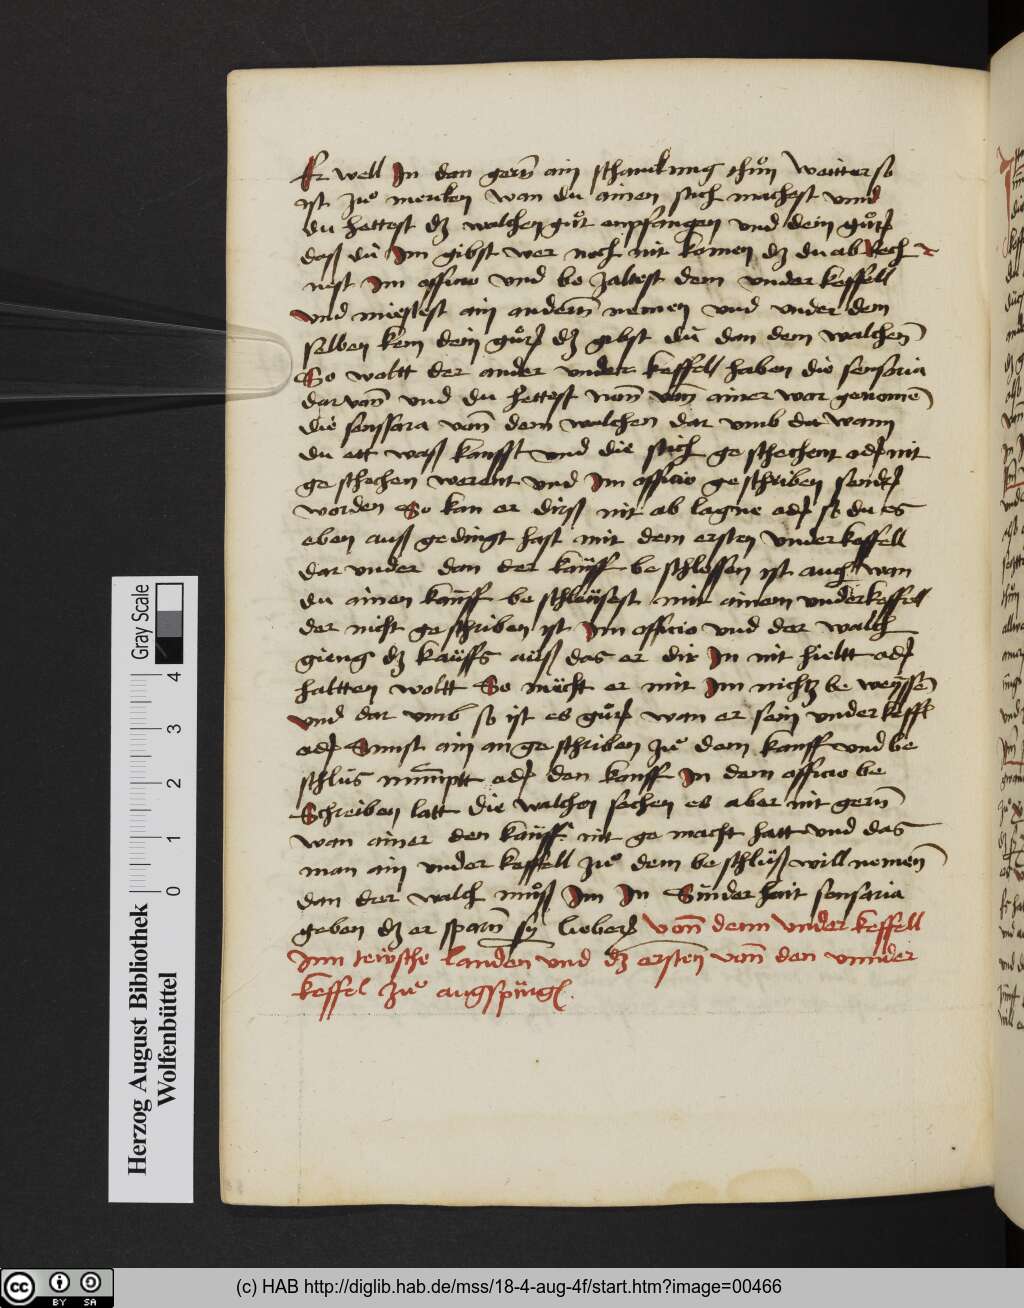 Er well In dan gern ain schanckung thůn weitter so
ist zuͦ mercken wan du ainen stich machest vnnd
du hettest dz walchen guͦt enpfangen vnd dein guͦrt
daß du Im gibst wer noch nit komen dz du ab Rech
nest Im officio vnd be zaltest dem vnder keffell
vnd miestest ain andern nemen vnd vnder dem
selben kem dein guͦrt dz gibst du dan dem walchen
So woltt der ander vnder keffell haben die sensaria
dar van vnd du hettest nonn vann ainer war genomen
die senssara vann dem walchen dar vmb da wann
du ett waß kaufft vnd die stich ge schechent oder nit
ge schechen werent vnd Im officio ge schriben send
worden So kan er dirß nit ab lagne oder sz du es
eben auß gedingt hast mit dem ersten vnder keffell
dar vnder dan der kauff be schlossen ist aug wan
du ainen kauff be schleusest mit ainem vnderkeffell
der nicht ge schriben ist Im officio vnd der walch
gieng dz kauffs auß das er dir In nit hieltt oder
haltten woltt So mücht er mit Im nichtz be weyssen
vnd dar vmb so ist es guͦt wan er sein vnder keffl
oder Sunst ain an ge schriben zuͦ dem kauff vnd be
schlus nimptt oder den kauff In dem officio be
Schreiben latt die walchen sechen es aber nit gern
wan ainer den kauff nit ge macht hatt vnd das
man ain vnder keffell zuͦ dem be schluß will nemen
dan der walch muͦß Im In Sunder hait sensaria
geben dz er sparn sy lieber vonn denn vnder keffell
Inn teutsche landen vnd dz ersten vann den vnnder
keffel zuͦ augspurg
Gray Scale
4
3
2
1
0
Herzog August Bibliothek
Wolfenbüttel
cc BY SA
(c) HAB http://diglib.hab.de/mss/18-4-aug-4f/start.htm?image=00466